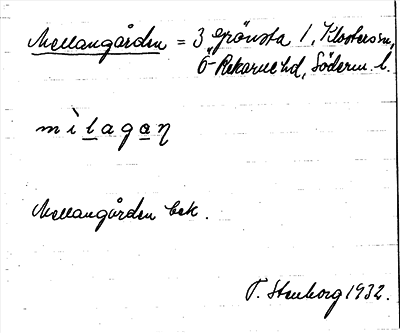 Mellangården = 3 Grönsta 1, Klosters sn,
Ö Rekarne hd, Söderm. l.
mìlagaŋ
Mellangården bek.
T. Stenborg 1932.